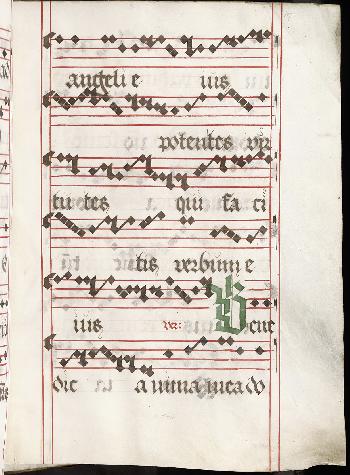 angeli e ius
potentes vir
tutes qui fa ci
tis verbum e
ius ver: Bene
dic anima mea do